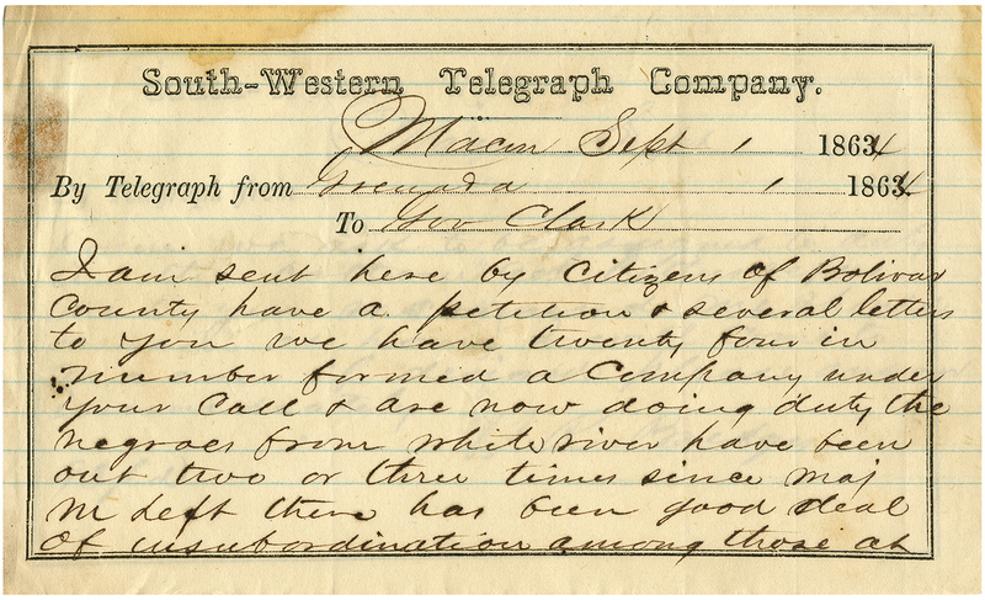 South-Western Telegraph Company.
Macon Sept 1 1864
By Telegraph from Grenada 1 1864
To Gov Clark
I am sent here by Citizens of Bolivar
County have a petition & several letters
to you we have twenty four in
number formed a Company under
your Call & are now doing duty the
negroes from white river have been
out two or three times since maj
M Left there has been good deal
of insubordination among those at